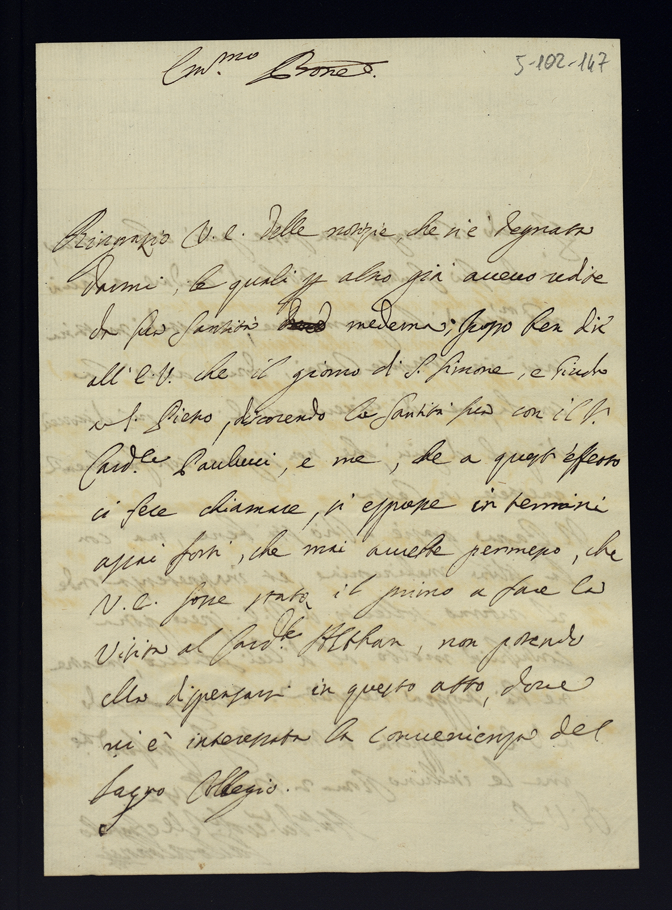 5-102-147
Em.mo
Ringrazio V. E. delle notizie, che si è degnata
darmi, le quali p altro già avevo udite
da Sua Santità medema; posso ben dir
all'E.V. che il giorno di S. Simone, e Giuda
a S. Pietro, discorendo la Santità sua con il S.r
Card.le Paulucci, e me, che a quest'effetto
ci fece chiamare, si espresse in termini
assai forti, che mai averebbe permesso, che
V. E. fosse stata il primo a fare la
visita al Card.le Althan, non potendo
ella dispensarsi in questo atto, dove
vi è interessata la convenienza del
Sagro Collegio.